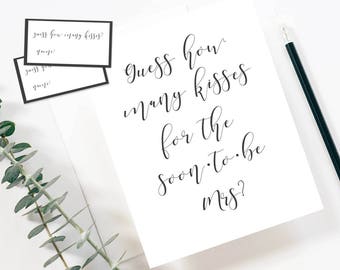 guess how many kisses?
name:
guess how
name:
guess how
many kisses
for the
soon•to•be
mrs?